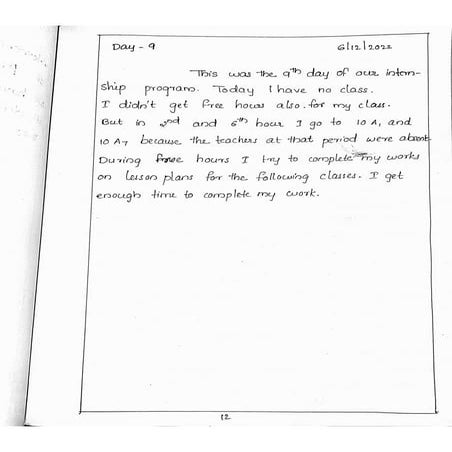 Day - 9 6/12/2022
This was the 9th day of our intern-
ship program. Today I have no class.
I didn't get free hours also for my class.
But in 2nd and 6th hour I go to 10 A, and
10 A7 because the teachers at that period were absent.
During free hours I try to complete my works
on lesson plans for the following classes. I get
enough time to complete my work.
12